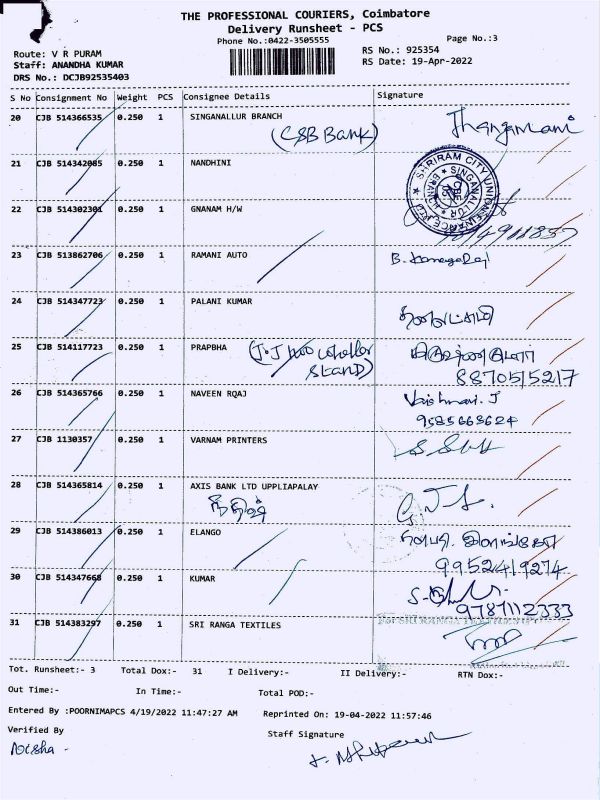 THE PROFESSIONAL COURIERS, Coimbatore
Delivery Runsheet - PCS
Phone No.:0422-3505555
Page No.:3
Route: V R PURAM
RS No.: 925354
Staff: ANANDHA KUMAR
RS Date: 19-Apr-2022
DRS No.: DCJB92535403
S No Consignment No Weight PCS Consignee Details Signature
20 CJB 514366535 0.250 1 SINGANALLUR BRANCH Thangamani
(CSB Bank)
21 CJB 514342085 0.250 1 NANDHINI
SHRIRAM CITY UNION FINANCE LTD
SINGANALLUR
22 CJB 514302301 0.250 1 GNANAM H/W
23 CJB 513862706 0.250 1 RAMANI AUTO B. Kanagaraj
24 CJB 514347723 0.250 1 PALANI KUMAR தனலட்சுமி
25 CJB 514117723 0.250 1 PRAPBHA (J.J STAND)
8870515217
26 CJB 514365766 0.250 1 NAVEEN RQAJ Vaishnavi. J
9585668624
27 CJB 1130357 0.250 1 VARNAM PRINTERS
28 CJB 514365814 0.250 1 AXIS BANK LTD UPPLIAPALAY
29 CJB 514386013 0.250 1 ELANGO
9952419274
30 CJB 514347668 0.250 1 KUMAR
9787112333
31 CJB 514383297 0.250 1 SRI RANGA TEXTILES
Tot. Runsheet:- 3 Total Dox:- 31 I Delivery:- II Delivery:- RTN Dox:-
Out Time:- In Time:- Total POD:-
Entered By :POORNIMAPCS 4/19/2022 11:47:27 AM Reprinted On: 19-04-2022 11:57:46
Verified By Staff Signature